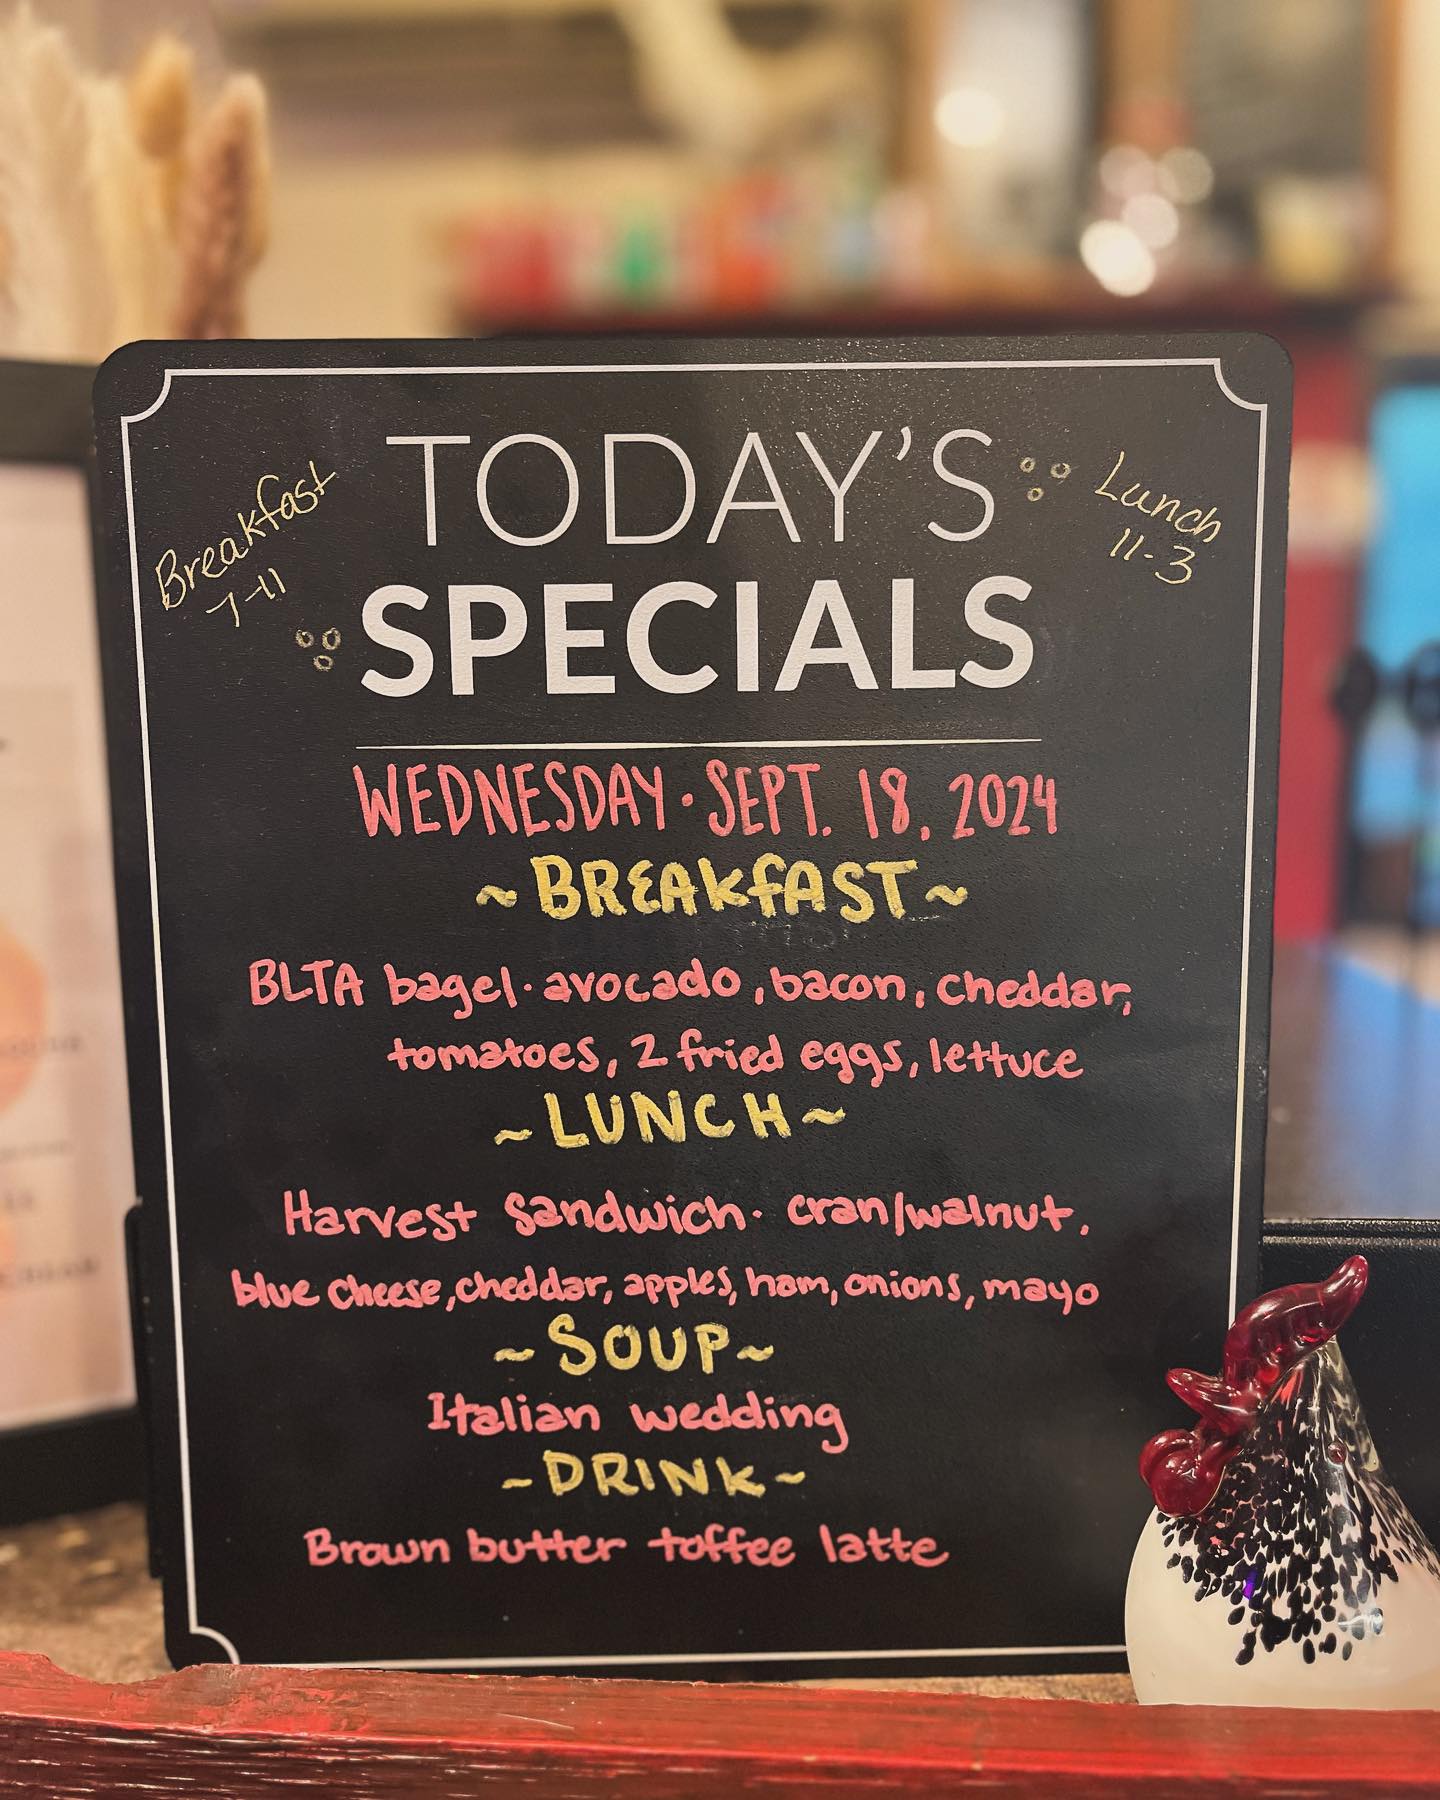 TODAY'S
Breakfast
7-11
Lunch
11-3
SPECIALS
WEDNESDAY · SEPT. 18, 2024
~BREAKfAST~
BLTA bagel · avocado, bacon, cheddar,
tomatoes, 2 fried eggs, lettuce
~LUNCH~
Harvest Sandwich · cran/walnut,
blue cheese, cheddar, apples, ham, onions, mayo
~SOUP~
Italian wedding
~DRINK~
Brown butter toffee latte